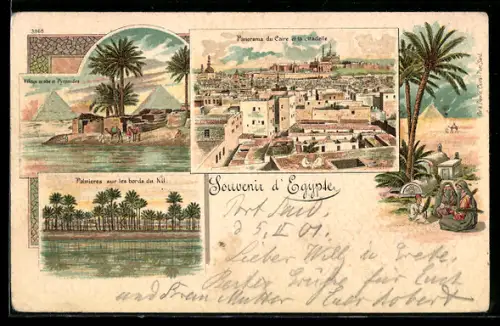 3868
Panorama du Caire et la citadelle
Village arabe et Pyramides
Palmieres sur les bords du Nil.
Souvenir d'Egypte.
Port Said
d 5. II 01.
Lieber Will u. Grete.
Grüße für Euch
und Frau Mutter Euer Robert